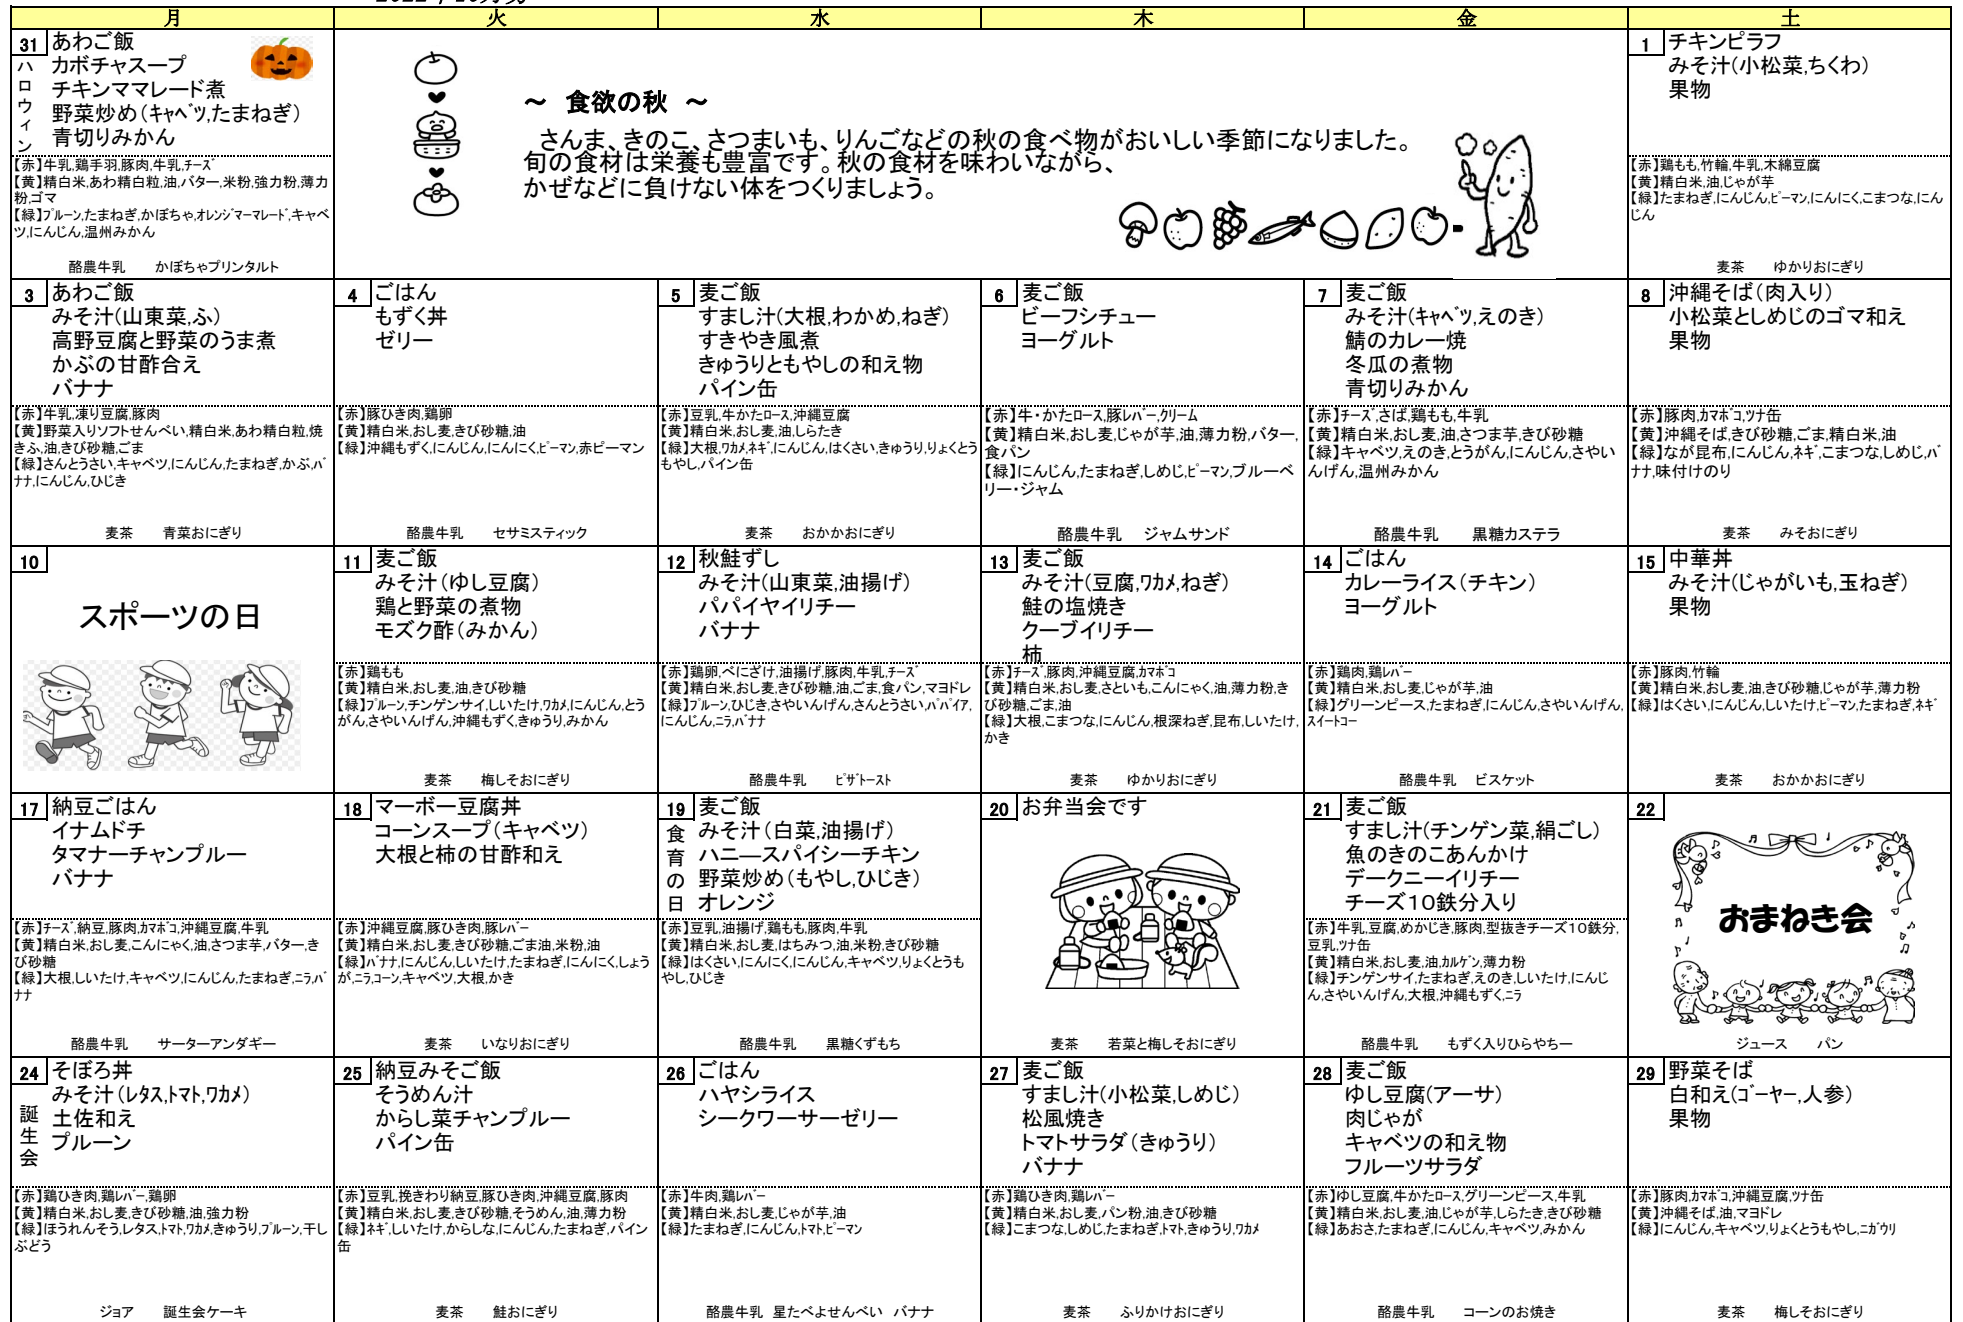 月 火 水 木 金 土
31
ハロウィン
あわご飯
カボチャスープ
チキンママレード煮
野菜炒め(ｷｬﾍﾞﾂ,たまねぎ)
青切りみかん
【赤】牛乳,鶏手羽,豚肉,牛乳,ﾁｰｽﾞ
【黄】精白米,あわ精白粒,油,バター,米粉,強力粉,薄力
粉,ゴマ
【緑】ﾌﾟﾙｰﾝ,たまねぎ,かぼちゃ,ｵﾚﾝｼﾞﾏｰﾏﾚｰﾄﾞ,キャベ
ツ,にんじん,温州みかん
酪農牛乳　かぼちゃプリンタルト
～ 食欲の秋 ～
さんま、きのこ、さつまいも、りんごなどの秋の食べ物がおいしい季節になりました。
旬の食材は栄養も豊富です。秋の食材を味わいながら、
かぜなどに負けない体をつくりましょう。
1
チキンピラフ
みそ汁(小松菜,ちくわ)
果物
【赤】鶏もも,竹輪,牛乳,木綿豆腐
【黄】精白米,油,じゃが芋
【緑】たまねぎ,にんじん,ﾋﾟｰﾏﾝ,にんにく,こまつな,にん
じん
麦茶　ゆかりおにぎり
3
あわご飯
みそ汁(山東菜,ふ)
高野豆腐と野菜のうま煮
かぶの甘酢合え
バナナ
【赤】牛乳,凍り豆腐,豚肉
【黄】野菜入りソフトせんべい,精白米,あわ精白粒,焼
きふ,油,きび砂糖,ごま
【緑】さんとうさい,キャベツ,にんじん,たまねぎ,かぶ,ﾊﾞ
ﾅﾅ,にんじん,ひじき
麦茶　青菜おにぎり
4
ごはん
もずく丼
ゼリー
【赤】豚ひき肉,鶏卵
【黄】精白米,おし麦,きび砂糖,油
【緑】沖縄もずく,にんじん,にんにく,ﾋﾟｰﾏﾝ,赤ピーマン
酪農牛乳　セサミスティック
5
麦ご飯
すまし汁(大根,わかめ,ねぎ)
すきやき風煮
きゅうりともやしの和え物
パイン缶
【赤】豆乳,牛かたﾛｰｽ,沖縄豆腐
【黄】精白米,おし麦,油,しらたき
【緑】大根,ﾜｶﾒ,ﾈｷﾞ,にんじん,はくさい,きゅうり,りょくとう
もやし,パイン缶
麦茶　おかかおにぎり
6
麦ご飯
ビーフシチュー
ヨーグルト
【赤】牛・かたﾛｰｽ,豚ﾚﾊﾞｰ,ｸﾘｰﾑ
【黄】精白米,おし麦,じゃが芋,油,薄力粉,バター,
食パン
【緑】にんじん,たまねぎ,しめじ,ﾋﾟｰﾏﾝ,ブルーベ
リー・ジャム
酪農牛乳　ジャムサンド
7
麦ご飯
みそ汁(ｷｬﾍﾞﾂ,えのき)
鯖のカレー焼
冬瓜の煮物
青切りみかん
【赤】ﾁｰｽﾞ,さば,鶏もも,牛乳
【黄】精白米,おし麦,油,さつま芋,きび砂糖
【緑】キャベツ,えのき,とうがん,にんじん,さやい
んげん,温州みかん
酪農牛乳　黒糖カステラ
8
沖縄そば(肉入り)
小松菜としめじのゴマ和え
果物
【赤】豚肉,ｶﾏﾎﾞｺ,ツナ缶
【黄】沖縄そば,きび砂糖,ごま,精白米,油
【緑】なが昆布,にんじん,ﾈｷﾞ,こまつな,しめじ,ﾊﾞ
ﾅﾅ,味付けのり
麦茶　みそおにぎり
10
スポーツの日
11
麦ご飯
みそ汁(ゆし豆腐)
鶏と野菜の煮物
モズク酢(みかん)
【赤】鶏もも
【黄】精白米,おし麦,油,きび砂糖
【緑】ﾌﾟﾙｰﾝ,チンゲンサイ,しいたけ,ﾜｶﾒ,にんじん,とう
がん,さやいんげん,沖縄もずく,きゅうり,みかん
麦茶　梅しそおにぎり
12
秋鮭ずし
みそ汁(山東菜,油揚げ)
パパイヤイリチー
バナナ
【赤】鶏卵,べにざけ,油揚げ,豚肉,牛乳,ﾁｰｽﾞ
【黄】精白米,おし麦,きび砂糖,油,ごま,食パン,マヨドレ
【緑】ﾌﾟﾙｰﾝ,ひじき,さやいんげん,さんとうさい,ﾊﾟﾊﾟｲｱ,
にんじん,ﾆﾗ,ﾊﾞﾅﾅ
酪農牛乳　ﾋﾟｻﾞﾄｰｽﾄ
13
麦ご飯
みそ汁(豆腐,ﾜｶﾒ,ねぎ)
鮭の塩焼き
クーブイリチー
柿
【赤】ﾁｰｽﾞ,豚肉,沖縄豆腐,ｶﾏﾎﾞｺ
【黄】精白米,おし麦,さといも,こんにゃく,油,薄力粉,き
び砂糖,ごま,油
【緑】大根,こまつな,にんじん,根深ねぎ,昆布,しいたけ,
かき
麦茶　ゆかりおにぎり
14
ごはん
カレーライス(チキン)
ヨーグルト
【赤】鶏肉,鶏ﾚﾊﾞｰ
【黄】精白米,おし麦,じゃが芋,油
【緑】グリーンピース,たまねぎ,にんじん,さやいんげん,
ｽｲｰﾄｺｰ
酪農牛乳　ビスケット
15
中華丼
みそ汁(じゃがいも,玉ねぎ)
果物
【赤】豚肉,竹輪
【黄】精白米,おし麦,油,きび砂糖,じゃが芋,薄力粉
【緑】はくさい,にんじん,しいたけ,ﾋﾟｰﾏﾝ,たまねぎ,ﾈｷﾞ
麦茶　おかかおにぎり
17
納豆ごはん
イナムドチ
タマナーチャンプルー
バナナ
【赤】ﾁｰｽﾞ,納豆,豚肉,ｶﾏﾎﾞｺ,沖縄豆腐,牛乳
【黄】精白米,おし麦,こんにゃく,油,さつま芋,バター,き
び砂糖
【緑】大根,しいたけ,キャベツ,にんじん,たまねぎ,ﾆﾗ,ﾊﾞ
ﾅﾅ
酪農牛乳　サーターアンダギー
18
マーボー豆腐丼
コーンスープ(キャベツ)
大根と柿の甘酢和え
【赤】沖縄豆腐,豚ひき肉,豚ﾚﾊﾞｰ
【黄】精白米,おし麦,きび砂糖,ごま油,米粉,油
【緑】ﾊﾞﾅﾅ,にんじん,しいたけ,たまねぎ,にんにく,しょう
が,ﾆﾗ,ｺｰﾝ,キャベツ,大根,かき
麦茶　いなりおにぎり
19
食育の日
麦ご飯
みそ汁(白菜,油揚げ)
ハニースパイシーチキン
野菜炒め(もやし,ひじき)
オレンジ
【赤】豆乳,油揚げ,鶏もも,豚肉,牛乳
【黄】精白米,おし麦,はちみつ,油,米粉,きび砂糖
【緑】はくさい,にんにく,にんじん,キャベツ,りょくとうも
やし,ひじき
酪農牛乳　黒糖くずもち
20
お弁当会です
麦茶　若菜と梅しそおにぎり
21
麦ご飯
すまし汁(チンゲン菜,絹ごし)
魚のきのこあんかけ
デークニーイリチー
チーズ10鉄分入り
【赤】牛乳,豆腐,めかじき,豚肉,型抜きチーズ10鉄分,
豆乳,ﾂﾅ缶
【黄】精白米,おし麦,油,ｶﾙｹﾞﾝ,薄力粉
【緑】チンゲンサイ,たまねぎ,えのき,しいたけ,にんじ
ん,さやいんげん,大根,沖縄もずく,ﾆﾗ
酪農牛乳　もずく入りひらやちー
22
おまねき会
ジュース　パン
24
誕生会
そぼろ丼
みそ汁(ﾚﾀｽ,ﾄﾏﾄ,ﾜｶﾒ)
土佐和え
プルーン
【赤】鶏ひき肉,鶏ﾚﾊﾞｰ,鶏卵
【黄】精白米,おし麦,きび砂糖,油,強力粉
【緑】ほうれんそう,レタス,ﾄﾏﾄ,ﾜｶﾒ,きゅうり,ﾌﾟﾙｰﾝ,干し
ぶどう
ジョア　誕生会ケーキ
25
納豆みそご飯
そうめん汁
からし菜チャンプルー
パイン缶
【赤】豆乳,挽きわり納豆,豚ひき肉,沖縄豆腐,豚肉
【黄】精白米,おし麦,きび砂糖,そうめん,油,薄力粉
【緑】ﾈｷﾞ,しいたけ,からしな,にんじん,たまねぎ,パイン
缶
麦茶　鮭おにぎり
26
ごはん
ハヤシライス
シークワーサーゼリー
【赤】牛肉,鶏ﾚﾊﾞｰ
【黄】精白米,おし麦,じゃが芋,油
【緑】たまねぎ,にんじん,ﾄﾏﾄ,ﾋﾟｰﾏﾝ
酪農牛乳 星たべよせんべい バナナ
27
麦ご飯
すまし汁(小松菜,しめじ)
松風焼き
トマトサラダ(きゅうり)
バナナ
【赤】鶏ひき肉,鶏ﾚﾊﾞｰ
【黄】精白米,おし麦,パン粉,油,きび砂糖
【緑】こまつな,しめじ,たまねぎ,ﾄﾏﾄ,きゅうり,ﾜｶﾒ
麦茶　ふりかけおにぎり
28
麦ご飯
ゆし豆腐(アーサ)
肉じゃが
キャベツの和え物
フルーツサラダ
【赤】ゆし豆腐,牛かたﾛｰｽ,グリーンピース,牛乳
【黄】精白米,おし麦,油,じゃが芋,しらたき,きび砂糖
【緑】あおさ,たまねぎ,にんじん,キャベツ,みかん
酪農牛乳　コーンのお焼き
29
野菜そば
白和え(ｺﾞｰﾔｰ,人参)
果物
【赤】豚肉,ｶﾏﾎﾞｺ,沖縄豆腐,ﾂﾅ缶
【黄】沖縄そば,油,マヨドレ
【緑】にんじん,キャベツ,りょくとうもやし,ﾆｶﾞｳﾘ
麦茶　梅しそおにぎり